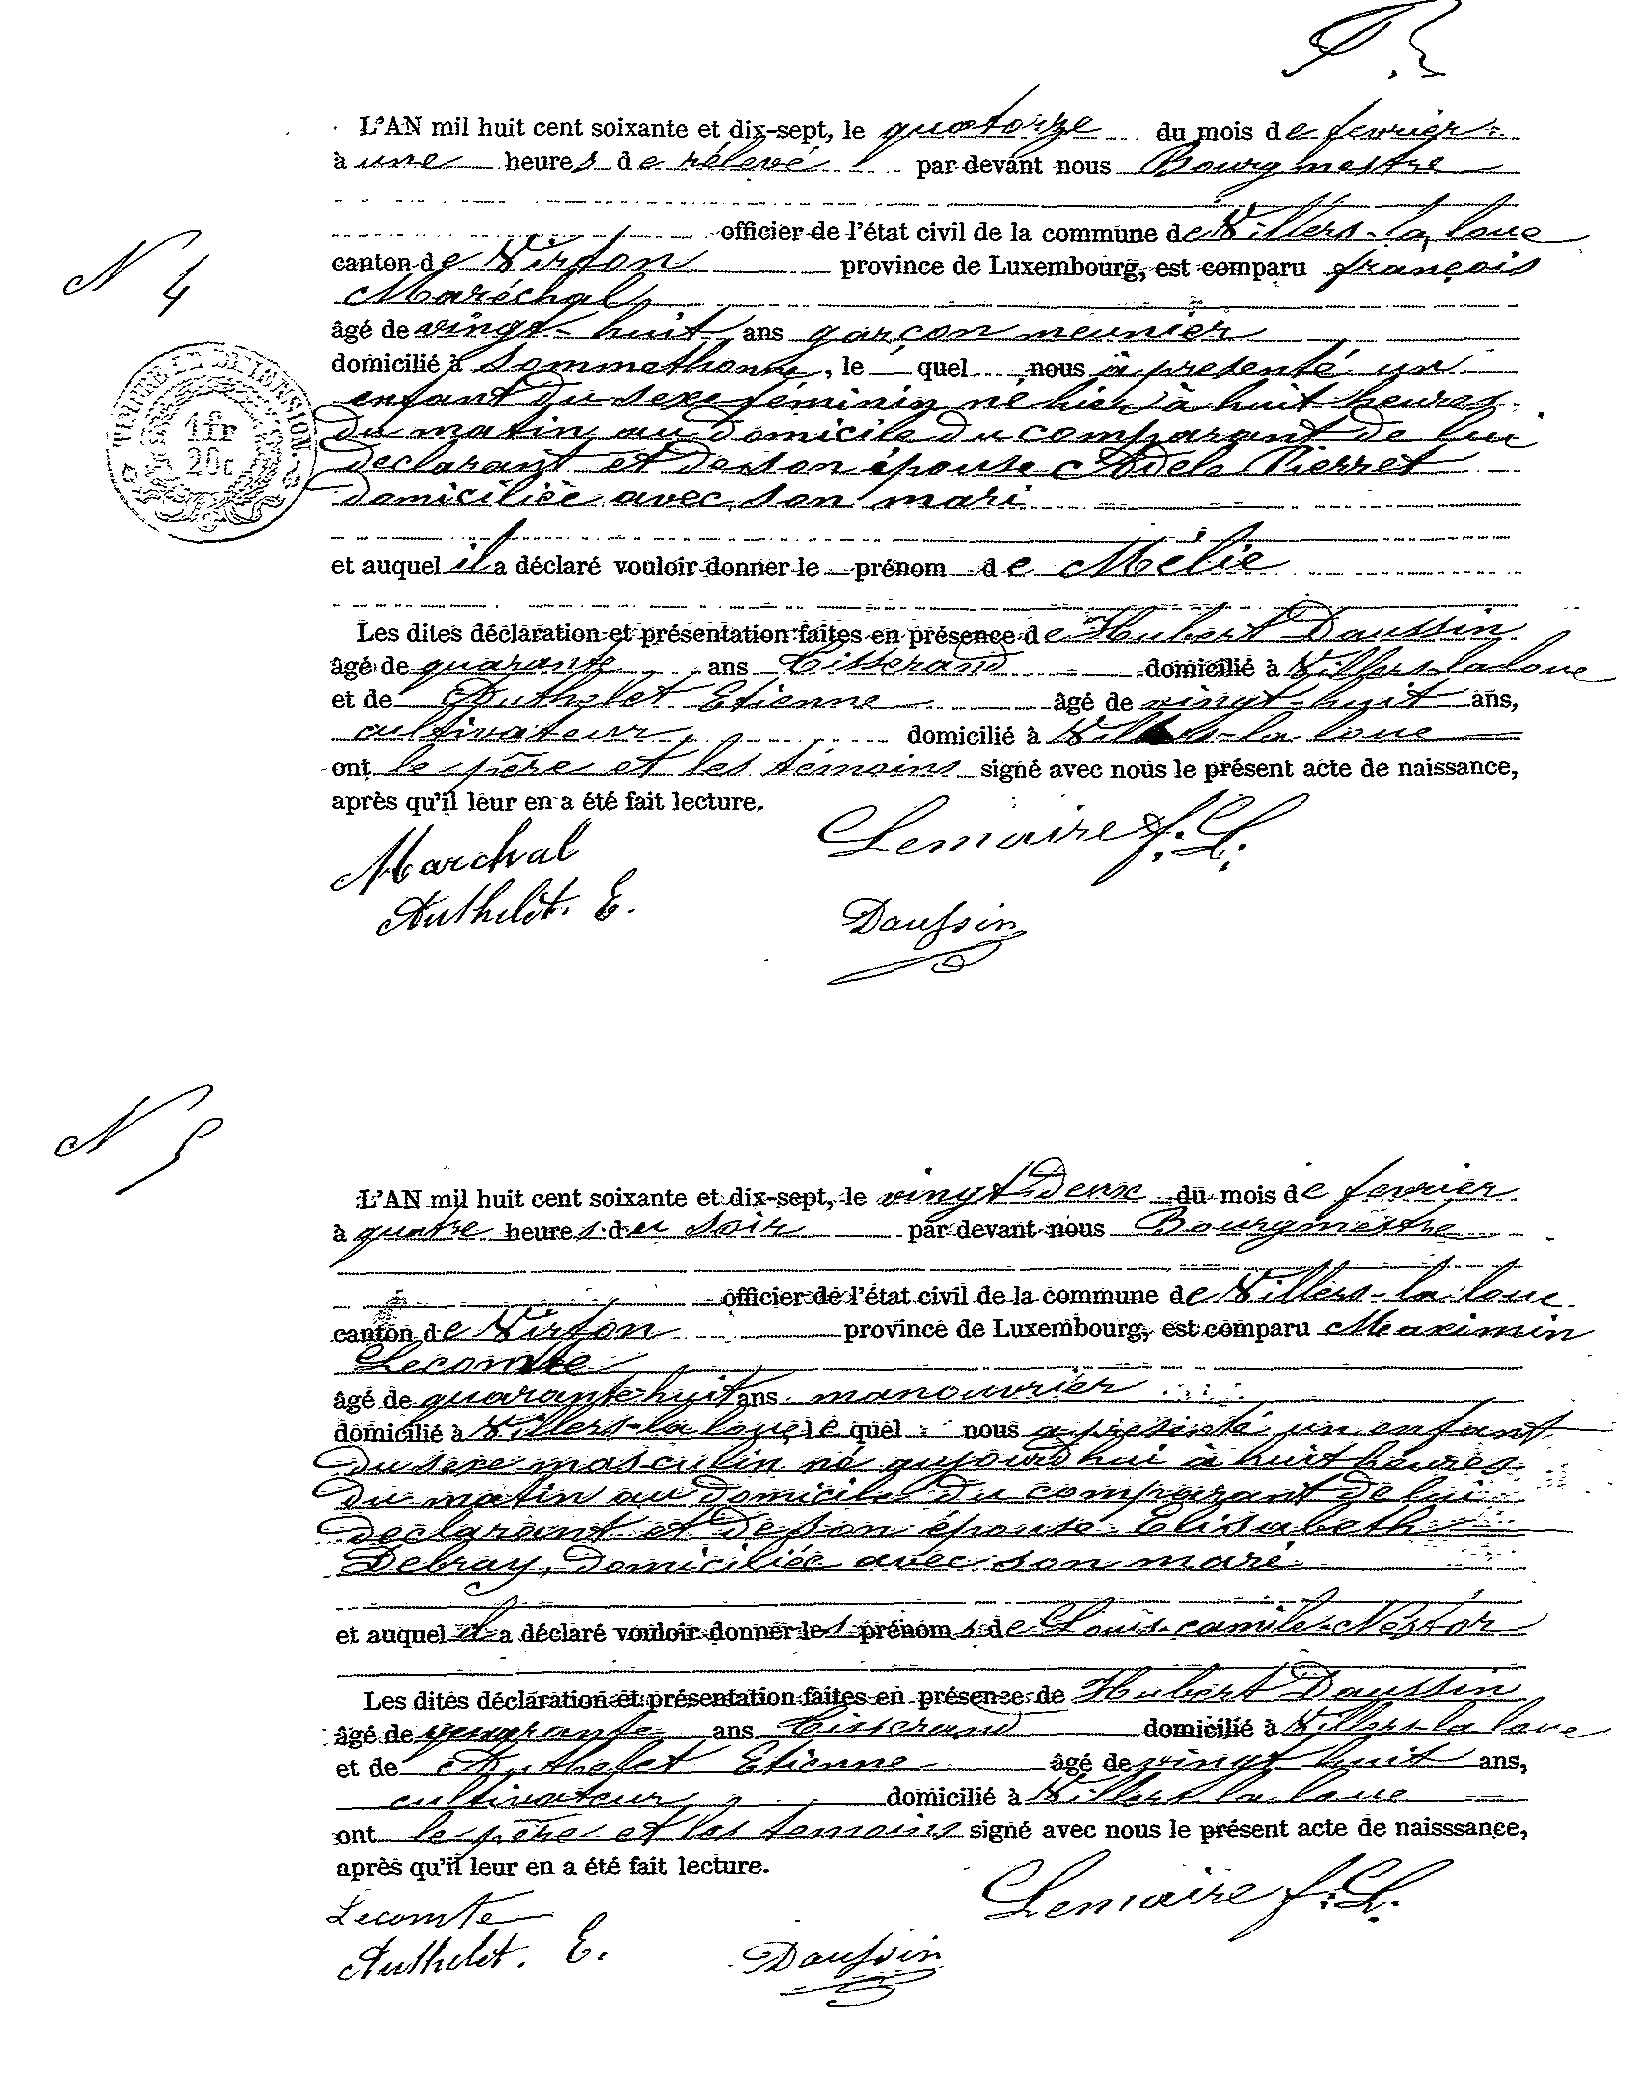 L'AN mil huit cent soixante et dix-sept, le quatorze du mois de fevrier
à une heures de rélevé par devant nous Bourgmestre
officier de l'état civil de la commune de Villers-la loue
N 4
canton de Virton province de Luxembourg, est comparu françois
Maréchal
âgé de vingt-huit ans garçon meunier
domicilié à Sommethonne, le quel nous a présenté un
enfant du sexe féminin né hier à huit heures
du matin au domicile du comparant de lui
déclarant et de son épouse Adele Pierret
domiciliée avec son mari
TIMBRE ET DIMENSION
1fr
20c
et auquel il a déclaré vouloir donner le prénom de Mélie
Les dites déclaration et présentation faites en présence de Hubert Daussin
âgé de quarante ans tisserand domicilié à Villers-la loue
et de Authelet Etienne âgé de vingt-huit ans,
cultivateur, domicilié à Villers-la loue
ont le père et les témoins signé avec nous le présent acte de naissance,
après qu'il leur en a été fait lecture.
Marchal Lemaire f. L.
Authelet. E. Daussin
N 5
L'AN mil huit cent soixante et dix-sept, le vingt deux du mois de fevrier
à quatre heures du soir par devant nous Bourgmestre
officier de l'état civil de la commune de Villers-la loue
canton de Virton province de Luxembourg, est comparu Maximin
Lecomte
âgé de quarante huit ans manouvrier
domicilié à Villers-la loue, le quel nous a présenté un enfant
du sexe masculin né aujourd hui à huit heures
du matin au domicile du comparant de lui
declarant et de son épouse Elisabeth
Debray, domiciliée avec son mari
et auquel il a déclaré vouloir donner les prénoms de Louis-camile-Nestor
Les dites déclaration et présentation faites en présense de Hubert Daussin
âgé de quarante ans tisserand domicilié à Villers-la loue
et de Authelet Etienne âgé de vingt huit ans,
cultivateur, domicilié à Villers la loue
ont le père et les temoins signé avec nous le présent acte de naisssance,
après qu'il leur en a été fait lecture.
Lecomte Lemaire f. L.
Authelet. E. Daussin